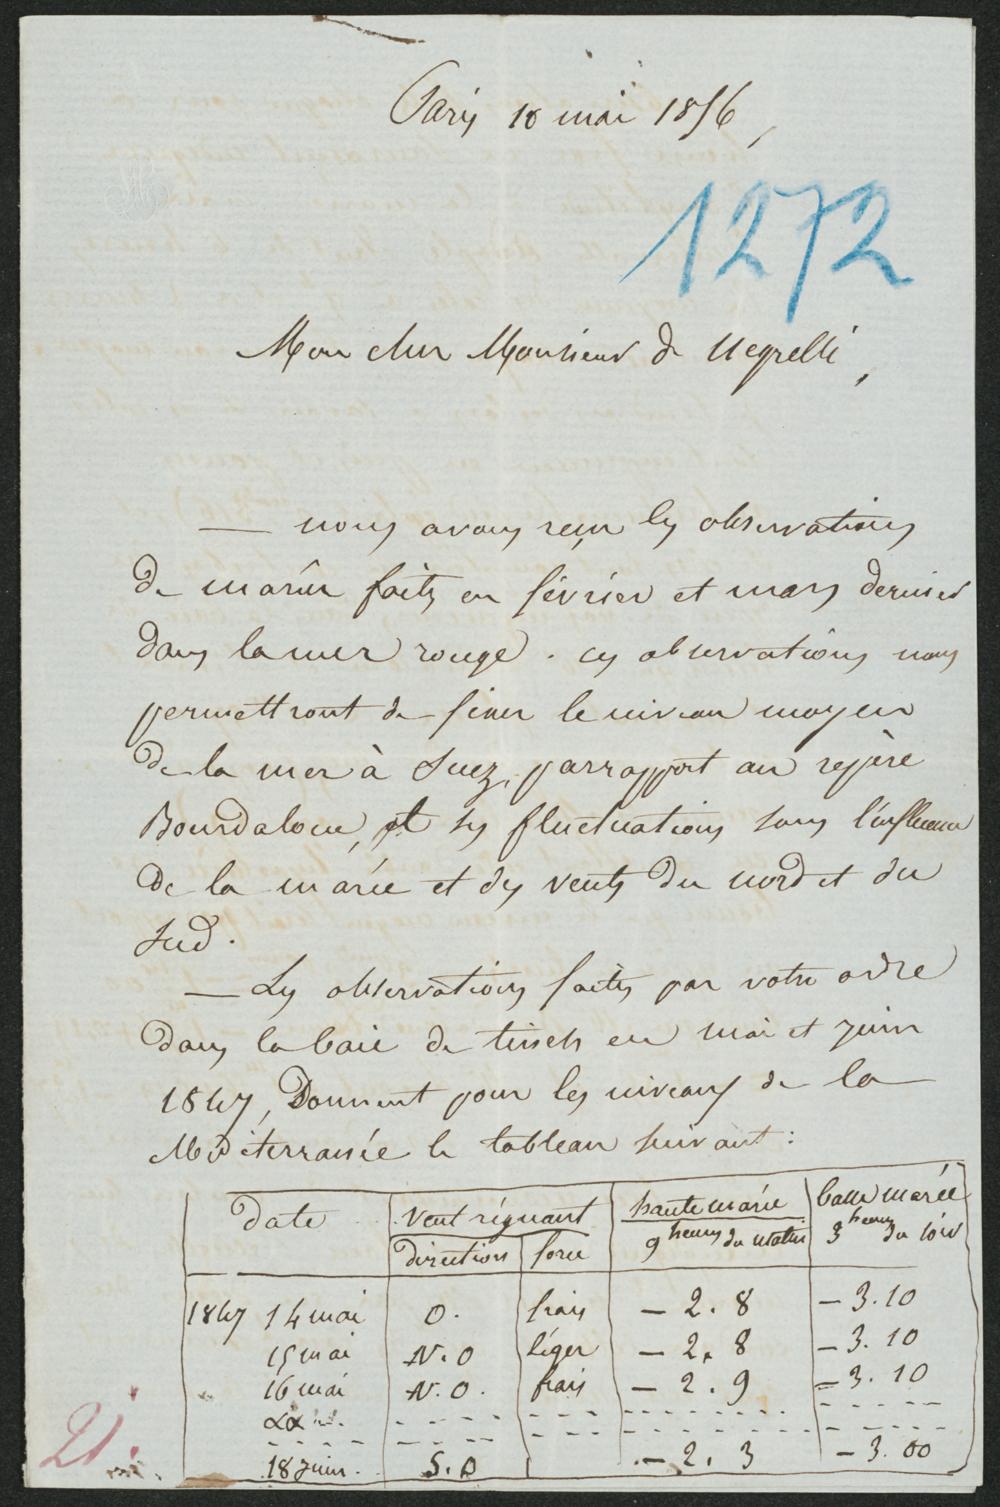 Paris 18 mai 1856,
1272
Mon cher Monsieur de Negrelli,
— nous avons reçu les observations
de marée faites en février et mars dernier
dans la mer rouge. ces observations nous
permettront de fixer le niveau moyen
de la mer à Suez, par rapport au repère
Bourdaloue, et ses fluctuations sous l'influence
de la marée et des vents du nord et du
sud.
— Les observations faites par votre ordre
dans la baie de tineh en mai et juin
1847, Donnent pour les niveaux de la
Méditerranée le tableau suivant :
date vent régnant haute marée basse marée
direction force 9 heures du matin 3 heures du soir
1847 14 mai O. frais — 2. 8 — 3. 10
15 mai N. O léger — 2. 8 — 3. 10
16 mai N. O. frais — 2. 9 — 3. 10
18 juin. S. O — 2. 3 — 3. 00
21.